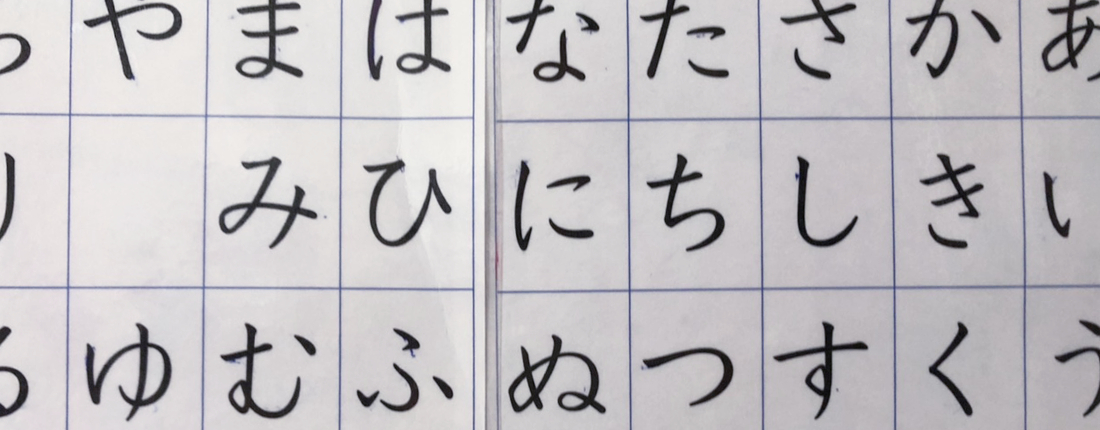 あ
かきく
さしす
たちつ
なにぬ
はひふ
まみむ
やゆ